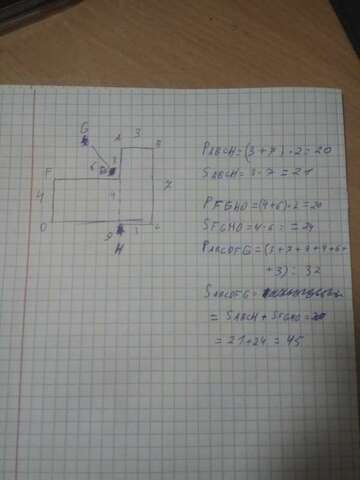 G
A 3 B
F 6 3
4 4 7
O 9 3 C
H
P ABCH = (3 + 7) · 2 = 20
S ABCH = 3 · 7 = 21
P FGHO = (4+6) · 2 = 20
S FGHO = 4 · 6 = 24
P ABCOFG = (3 + 7 + 9 + 4 + 6 +
+ 3) = 32
S ABCOFG =
= S ABCH + S FGHO =
= 21 + 24 = 45